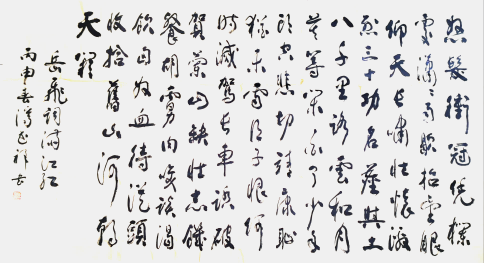 怒髮衝冠凭欄
處瀟瀟雨歇抬望眼
仰天長嘯壯懷激
烈三十功名塵與土
八千里路雲和月
莫等閒白了少年
頭空悲切靖康恥
猶未雪臣子恨何
時滅駕長車踏破
賀蘭山缺壯志飢
餐胡虜肉笑談渴
飲匈奴血待從頭
收拾舊山河朝
天闕
岳飛詞滿江紅
丙申春